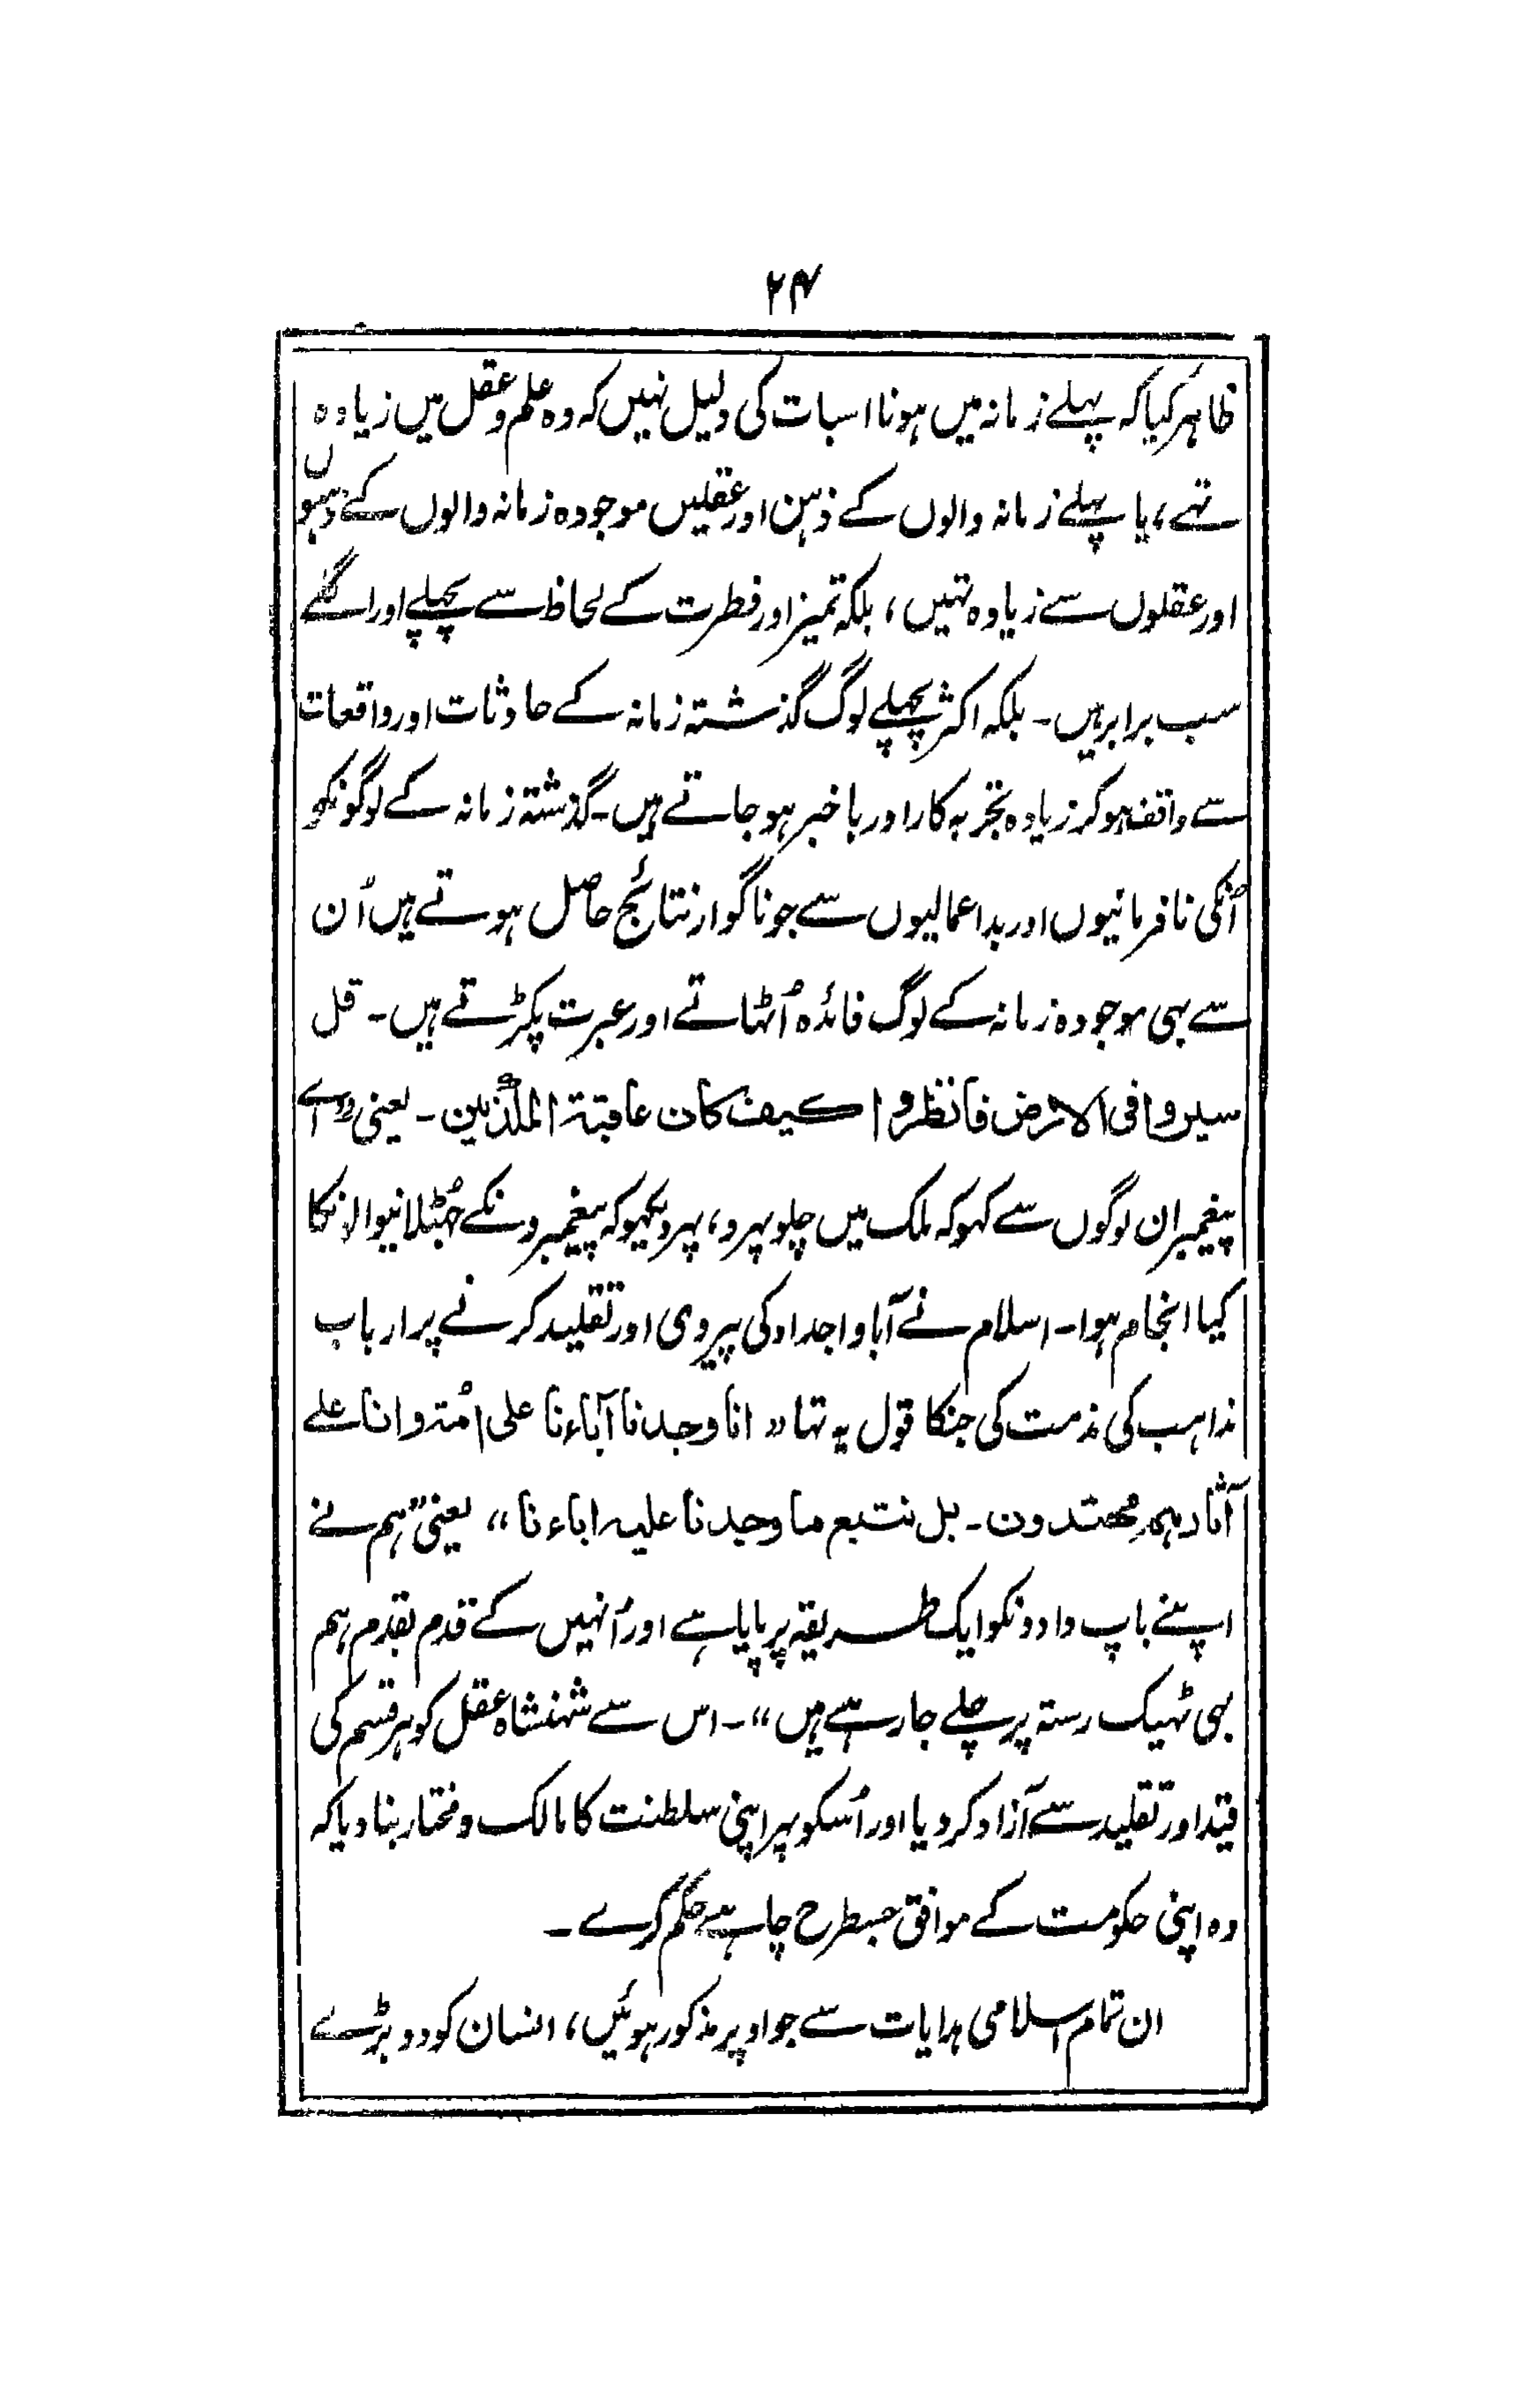 ۲۴
ظاہر کیا کہ پہلے زمانہ میں ہونا اسبات کی دلیل نہیں کہ وہ علم و عقل میں زیادہ
تہے، یا پہلے زمانہ والوں کے ذہن اور عقلیں موجودہ زمانہ والوں کے ذہنوں
اور عقلوں سے زیادہ تہیں، بلکہ تمیز اور فطرت کے لحاظ سے پچہلے اور اگلے
سب برابر ہیں۔ بلکہ اکثر پچہلے لوگ گذشتہ زمانہ کے حادثات اور واقعات
سے واقف ہو کر زیادہ تجربہ کار اور با خبر ہو جاتے ہیں۔ گذشتہ زمانہ کے لوگونکو
اُنکی نافرمانیوں اور بداعمالیوں سے جو ناگوار نتائج حاصل ہوتے ہیں اُن
سے بہی موجودہ زمانہ کے لوگ فائدہ اُٹہاتے اور عبرت پکڑتے ہیں۔ قل
سیروا فی الارض فانظروا کیف کان عاقبۃ المکذبین۔ یعنی "اے
پیغمبر ان لوگوں سے کہو کہ ملک میں چلو پہرو، پہر دیکہو کہ پیغمبرونکے جُہٹلانیوالونکا
کیا انجام ہوا۔ اسلام نے آبا و اجداد کی پیروی اور تقلید کرنے پر ارباب
مذاہب کی مذمت کی جنکا قول یہ تہا "انا وجدنا آباءنا علی اُمۃ وانا علے
آثارہم مُھتدون۔ بل نتبع ما وجدنا علیہ اباءنا" یعنی "ہم نے
اپنے باپ دادونکو ایک طریقہ پر پایا ہے اور اُنہیں کے قدم بقدم ہم
بہی ٹہیک رستہ پر چلے جا رہے ہیں"۔ اس سے شہنشاہ عقل کو ہر قسم کی
قید اور تقلید سے آزاد کر دیا اور اُسکو پہر اپنی سلطنت کا مالک و مختار بنا دیا کہ
وہ اپنی حکومت کے موافق جسطرح چاہے حکم کرے۔
ان تمام اسلامی ہدایات سے جو اوپر مذکور ہوئیں، انسان کو دو بڑے